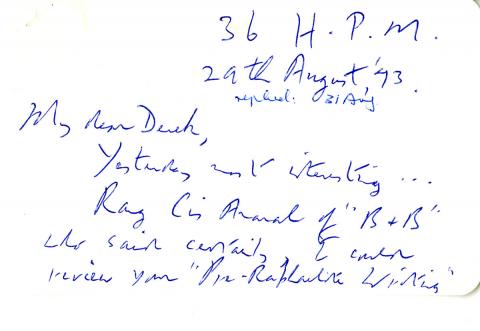 36 H.P.M.
29th August, '93.
replied: 31 Aug
My dear Derek,
Yesterday most interesting ...
Rang Cis Amaral of "B+B"
who said certainly, I could
review your "Pre-Raphaelite Writing"